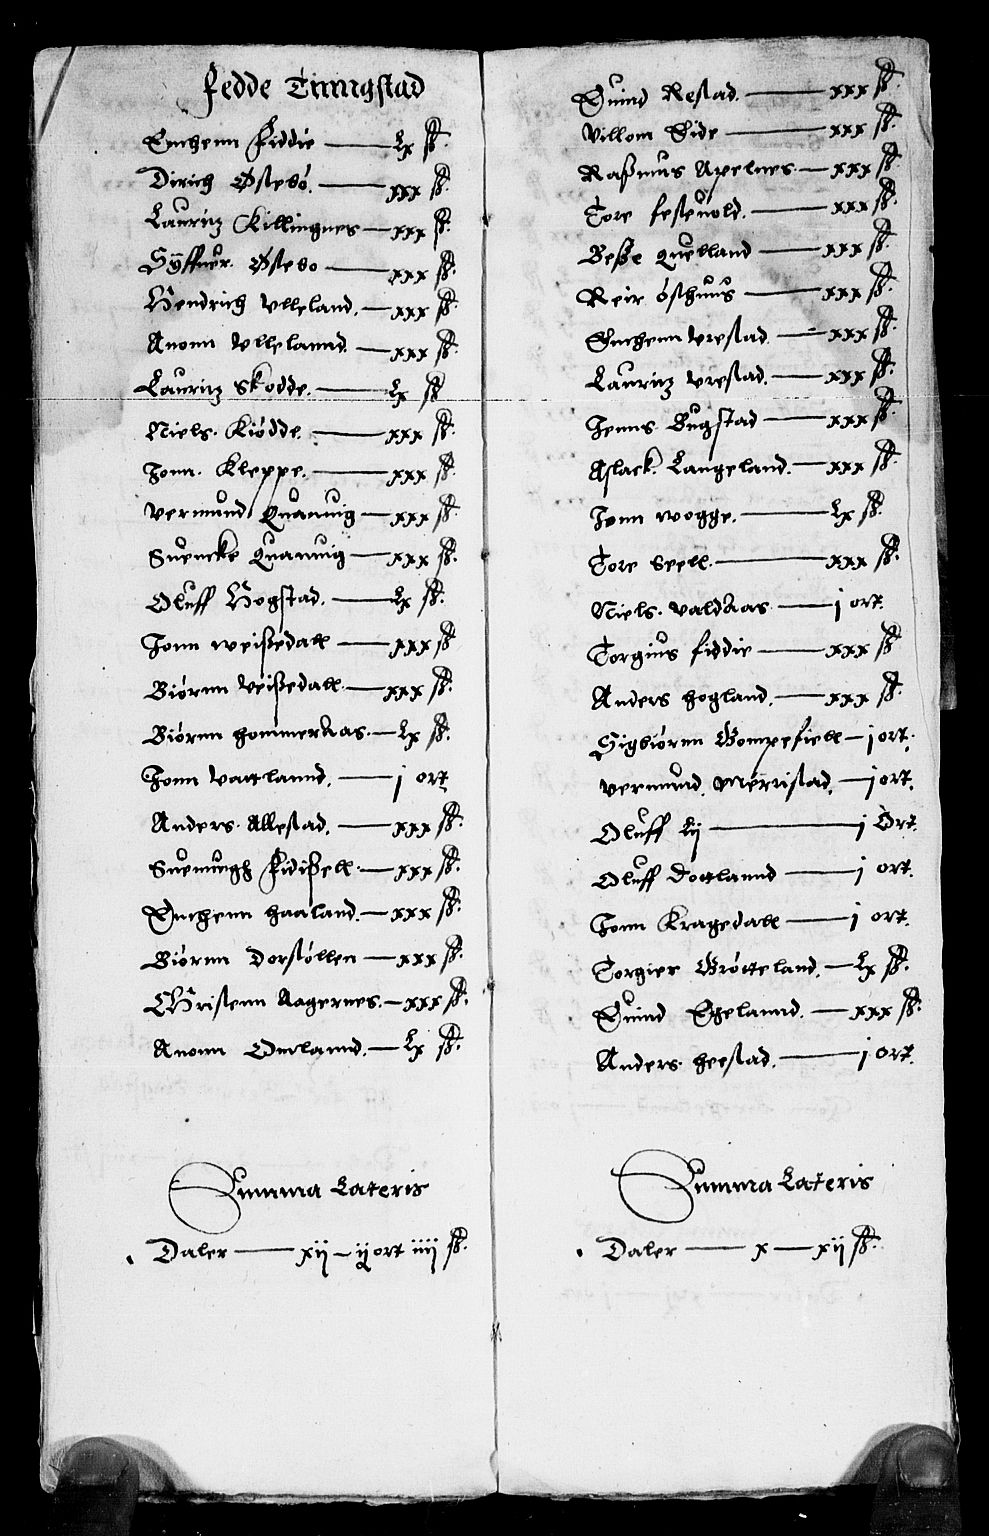 Fedde Tinngstad
Enchenn Fiddie — Lx ß.
Dirich Østebó. — xxx ß.
Lauritz Killingnes — xxx ß.
Syffuer. Østebo — xxx ß.
Hendrich Vlleland. — xxx ß.
Anonn Vllelannd. — xxx ß.
Lauritz Skodde. — Lx ß
Niels. Kiódde. — xxx ß.
Jonn. Kleppe. — xxx ß.
Vermund Quanuig — xxx ß.
Suencke Quanuig — xxx ß.
Oluff Hogstad. — Lx ß.
Jonn weißedall — xxx ß.
Biórnn Veißedall. — xxx ß.
Biórnn hommeraas. — Lx ß.
Jonn Vattlannd. — j ort
Anders. Allestad. — xxx ß.
Suenungh Fidißell. — xxx ß.
Enchenn haaland. — xxx ß.
Biórnn Dorstóllen — xxx ß.
Christenn Aagernes. — xxx ß.
Anonn Omlannd. — Lx ß.
Summa Lateris
Daler — xij — ij ort iiij ß.
Suind Restad. — xxx ß.
Villom Eide — xxx ß.
Raßmus Apelnes — xxx ß.
Tore festuold. — xxx ß.
Beße Quelland — xxx ß.
Reir Ósthuus — xxx ß.
Enchenn Vrestad — xxx ß.
Lauritz Vrestad. — xxx ß.
Jenns Bugstad — xxx ß.
Aslack. Langeland. — xxx ß.
Jonn wogge. — Lx ß.
Tore Seell. — xxx ß.
Niels. Valdaas — j ort.
Torgius fiddie — xxx ß
Anders hogland. — xxx ß.
Sigbiórnn Gompefiell — j ort.
Vermund. Meristad. — j ort.
Oluff Lij — j Ort.
Oluff Dottlannd — j ort.
Jonn Kragedall — j ort.
Torgier Grótteland. — Lx ß.
Suind Egelannd. — xxx ß.
Anders. heestad. — j ort.
Summa Lateris
Daler — x — xij ß.